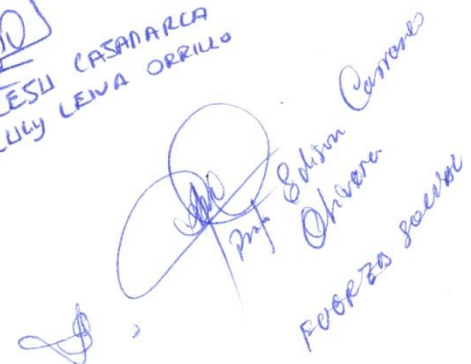 CASAMARCA
LULY LEIVA ORRILLO
Prof. Edison Carranza
Olivera
FUERZA SOCIAL